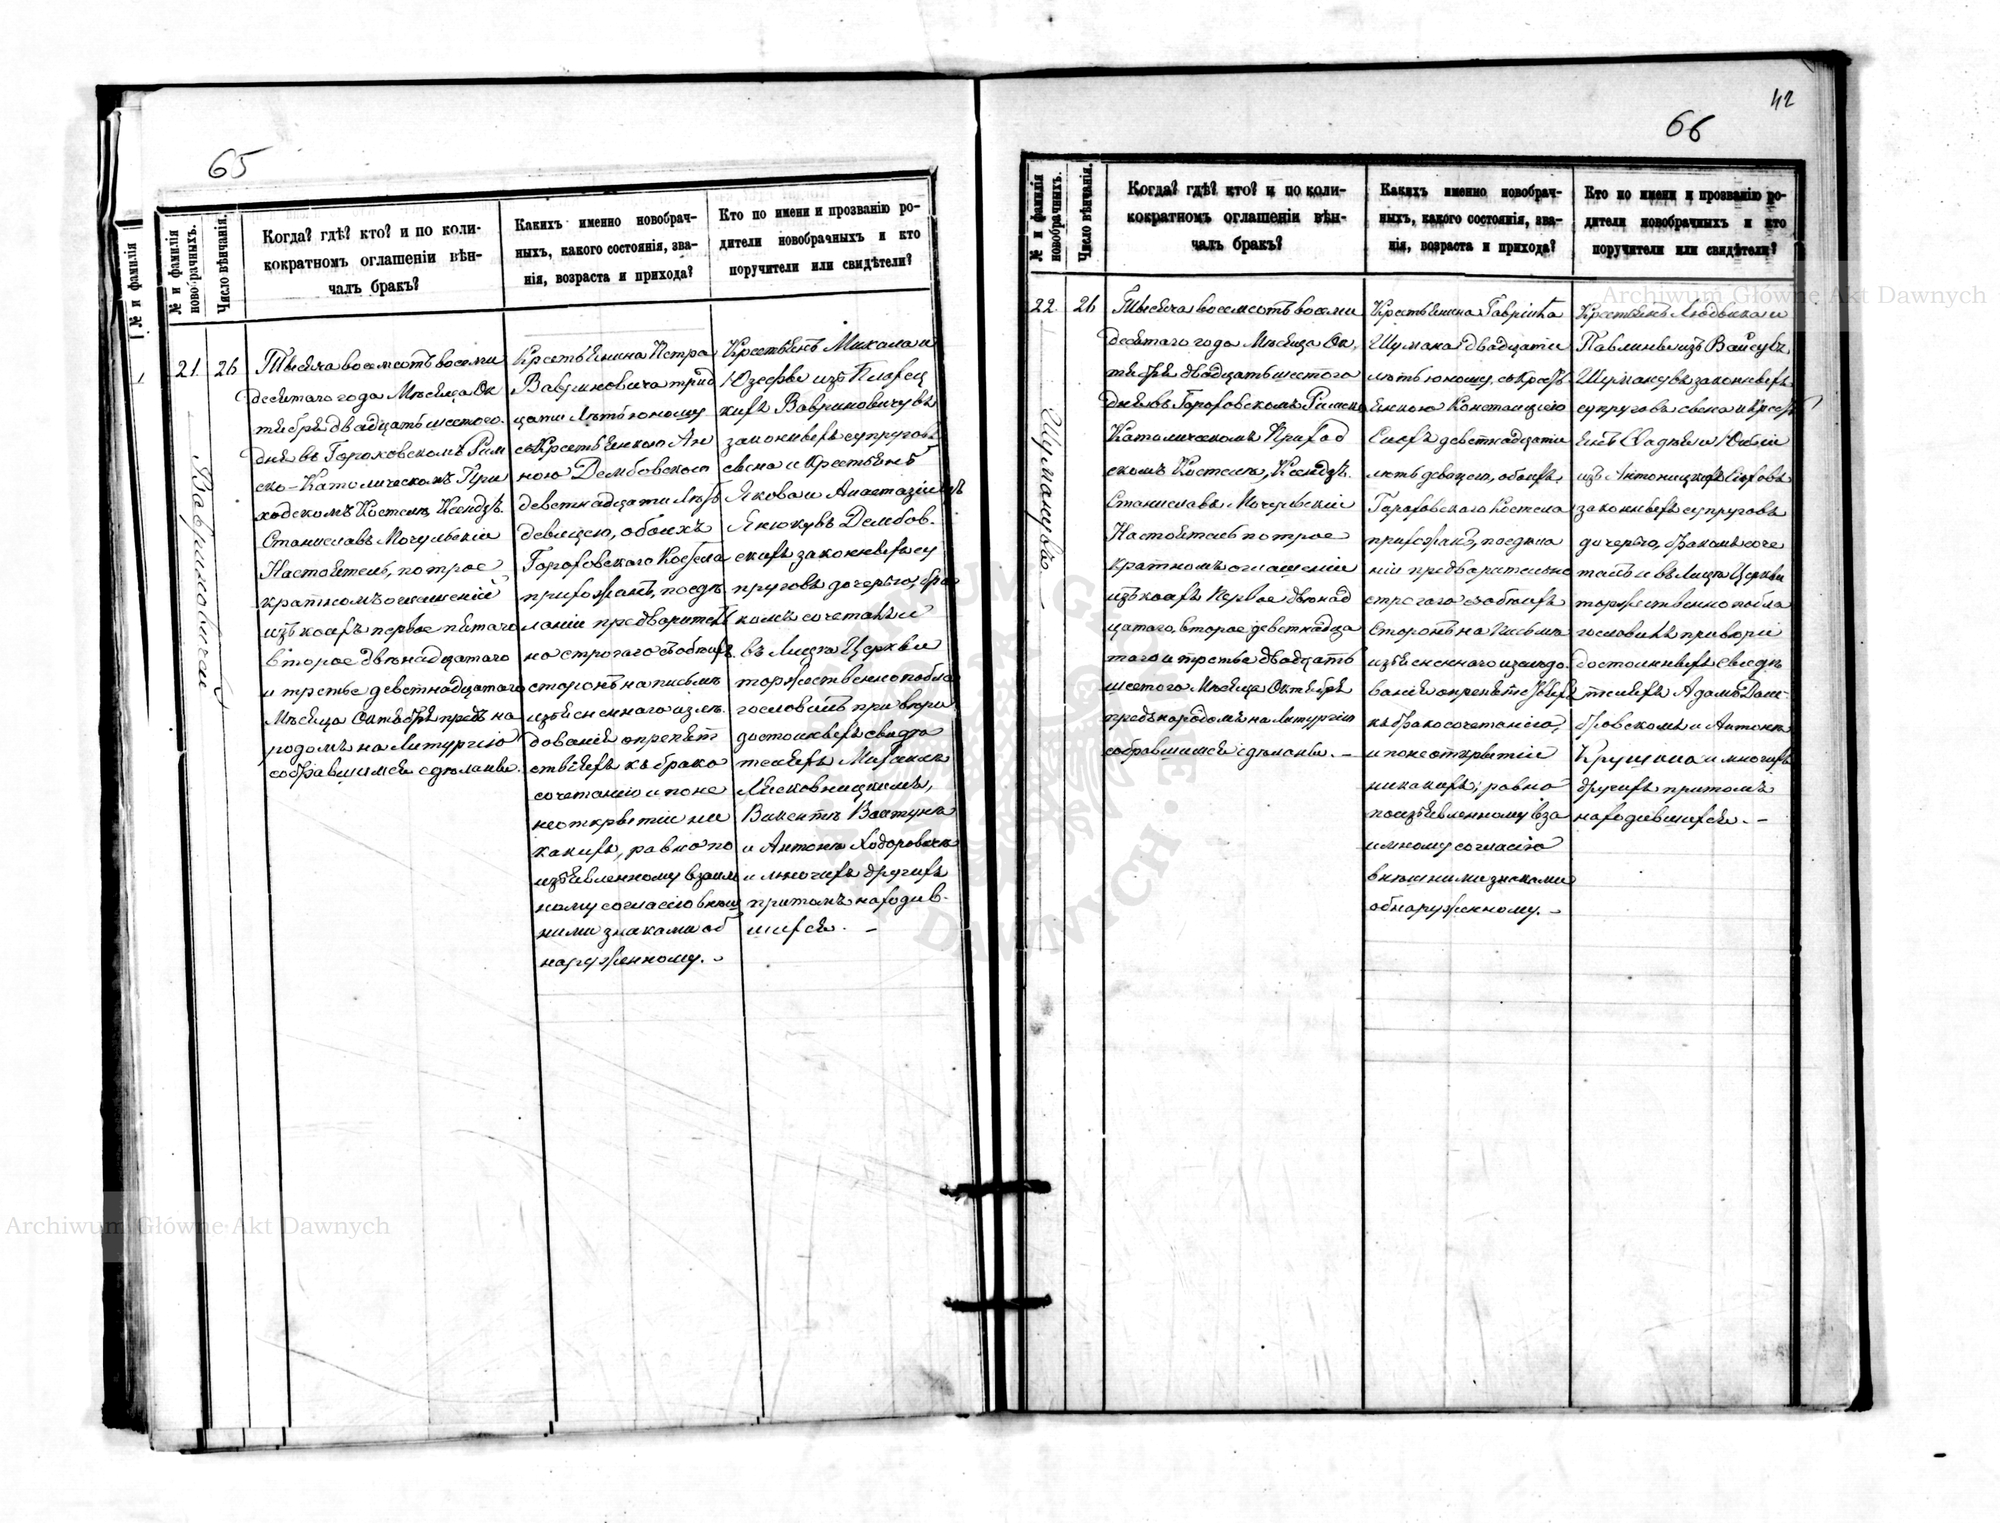 65
№ и фамилія
№ и фамилія
новобрачныхъ.
Число вѣнчанія.
Когда? гдѣ? кто? и по коли-
кократномъ оглашеніи вѣн-
чалъ бракъ?
Какихъ именно новобрач-
ныхъ, какого состоянія, зва-
нія, возраста и прихода?
Кто по имени и прозванію ро-
дители новобрачныхъ и кто
поручители или свидѣтели?
21.
26
Тысяча восемсотъ восми
десятаго года Мѣсяца Ок
тября двадцать шестого
дня въ Гороховскомъ Рим
ско-Католическомъ При
ходскомъ Костелѣ Ксендзъ
Станиславъ Мочульскій
Настоятель, по трое
кратномъ оглашеніи
изъ коихъ первое пятаго
второе двѣнадцатаго
и третье девятнадцатаго
Мѣсяца Октября предъ на
родомъ на Литургію
собравшимся сдѣланы.
Крестьянина Петра
Вавриновича трид
цати лѣтъ юношу
съ Крестьянкою Ан
ною Дембовскою
девятнадцати лѣтъ
девицею, обоихъ
Гороховского Костела
прихожанъ, по сдѣ
ланіи предварител
но строгаго съ обоихъ
сторонъ на письмѣ
изъясненнаго изслѣ
дованія о препят
ствіяхъ къ брако
сочетанію и по не
неоткрытіи ни
какихъ, равно по
изъявленному взаим
ному согласію внѣш
ними знаками об
наруженному.
Крестьянъ Михала и
Юзефы изъ
Вавриновичувъ
законныхъ супруговъ
сына и Крестьянъ
Якова и Анастазіи изъ
Янюкувъ Дембов-
скихъ законныхъ су
пруговъ дочерью, бра
комъ сочеталъ и
въ Лицѣ Церкви
торжественно побла
гословилъ при вѣро
достойныхъ свидѣ
теляхъ Михалѣ
Лисковницкимъ,
Викентѣ
и Антонѣ Ходоровичѣ
и многихъ другихъ
при томъ находив-
шихся. –
66
42
№ и фамилія
новобрачныхъ.
Число вѣнчанія.
Когда? гдѣ? кто? и по коли-
кократномъ оглашеніи вѣн-
чалъ бракъ?
Какихъ именно новобрач-
ныхъ, какого состоянія, зва-
нія, возраста и прихода?
Кто по имени и прозванію ро-
дители новобрачныхъ и кто
поручители или свидѣтели?
22.
26
Тысяча восемсотъ восми
десятаго года Мѣсяца Ок
тября двадцать шестого
дня въ Гороховскомъ Римско
Католическомъ Приход
скомъ Костелѣ, Ксендзъ
Станиславъ Мочульскій
Настоятель по трое
кратномъ оглашеніи
изъ коихъ Первое двѣнад
цатаго, второе девятнадца
таго и третье двадцать
шестого Мѣсяца Октября
предъ народомъ на Литургію
собравшимся сдѣланы. –
Крестьянина Гавріила
Шумана двадцати
лѣтъ юношу, съ Кресть
янкою Констанціею
девятнадцати
лѣтъ девицею, обоихъ
Гороховского Костела
прихожанъ, по сдѣла
ніи предварительно
строгаго съ обоихъ
Сторонъ на Письмѣ
изъясненнаго изслѣдо
ванія о препятствіяхъ
къ бракосочетанію,
и по неоткрытіи
никакихъ, равно
по изъявленному вза
имному согласію
внѣшними знаками
обнаруженному. –
Крестьянъ Людвика и
Павлины изъ
Шумановъ законныхъ
супруговъ сына и Кресть
янъ Фадѣя и Юліи
изъ
законныхъ супруговъ
дочерью, бракомъ соче
талъ и въ Лицѣ Церкви
торжественно побла
гословилъ при вѣро
достойныхъ свидѣ
теляхъ Адамѣ Дом-
бровскомъ и Антонѣ
и многихъ
другихъ при томъ
находившихся. –
Archiwum Główne Akt Dawnych
Archiwum Główne Akt Dawnych